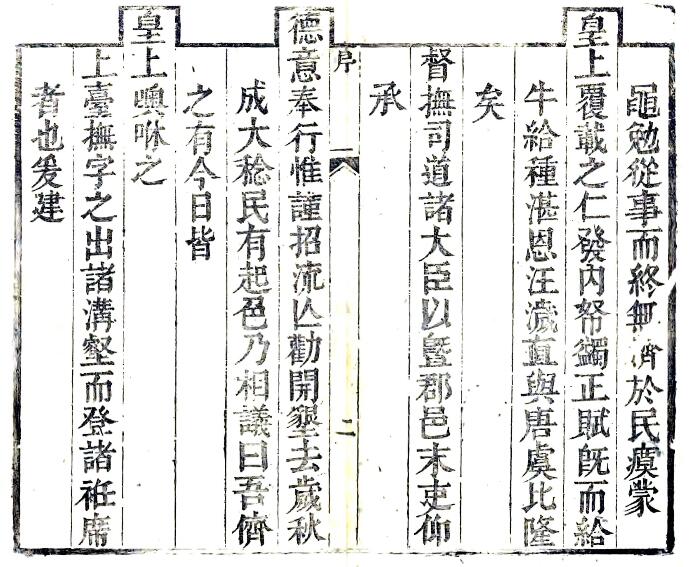 黽勉從事而終無濟於民瘼蒙
皇上覆載之仁發內帑蠲正賦旣而給
牛給種湛恩汪濊直與唐虞比隆
矣
督撫司道諸大臣以曁郡邑末吏仰
承
序
二
德意奉行惟謹招流亾勸開墾去歲秋
成大稔民有起色乃相議曰吾儕
之有今日皆
皇上噢咻之
上臺撫字之出諸溝壑而登諸袵席
者也爰建